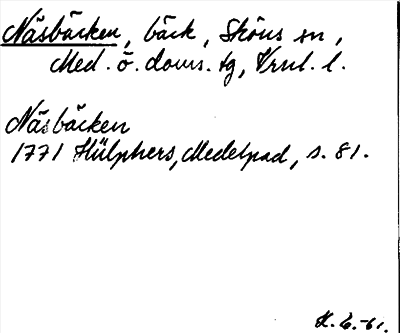 Näsbäcken, bäck, Sköns sn,
Med. ö. doms. tg, Vrnl. l.
Näsbäcken
1771 Hülphers, Medelpad, s. 81.
K. E. -61.